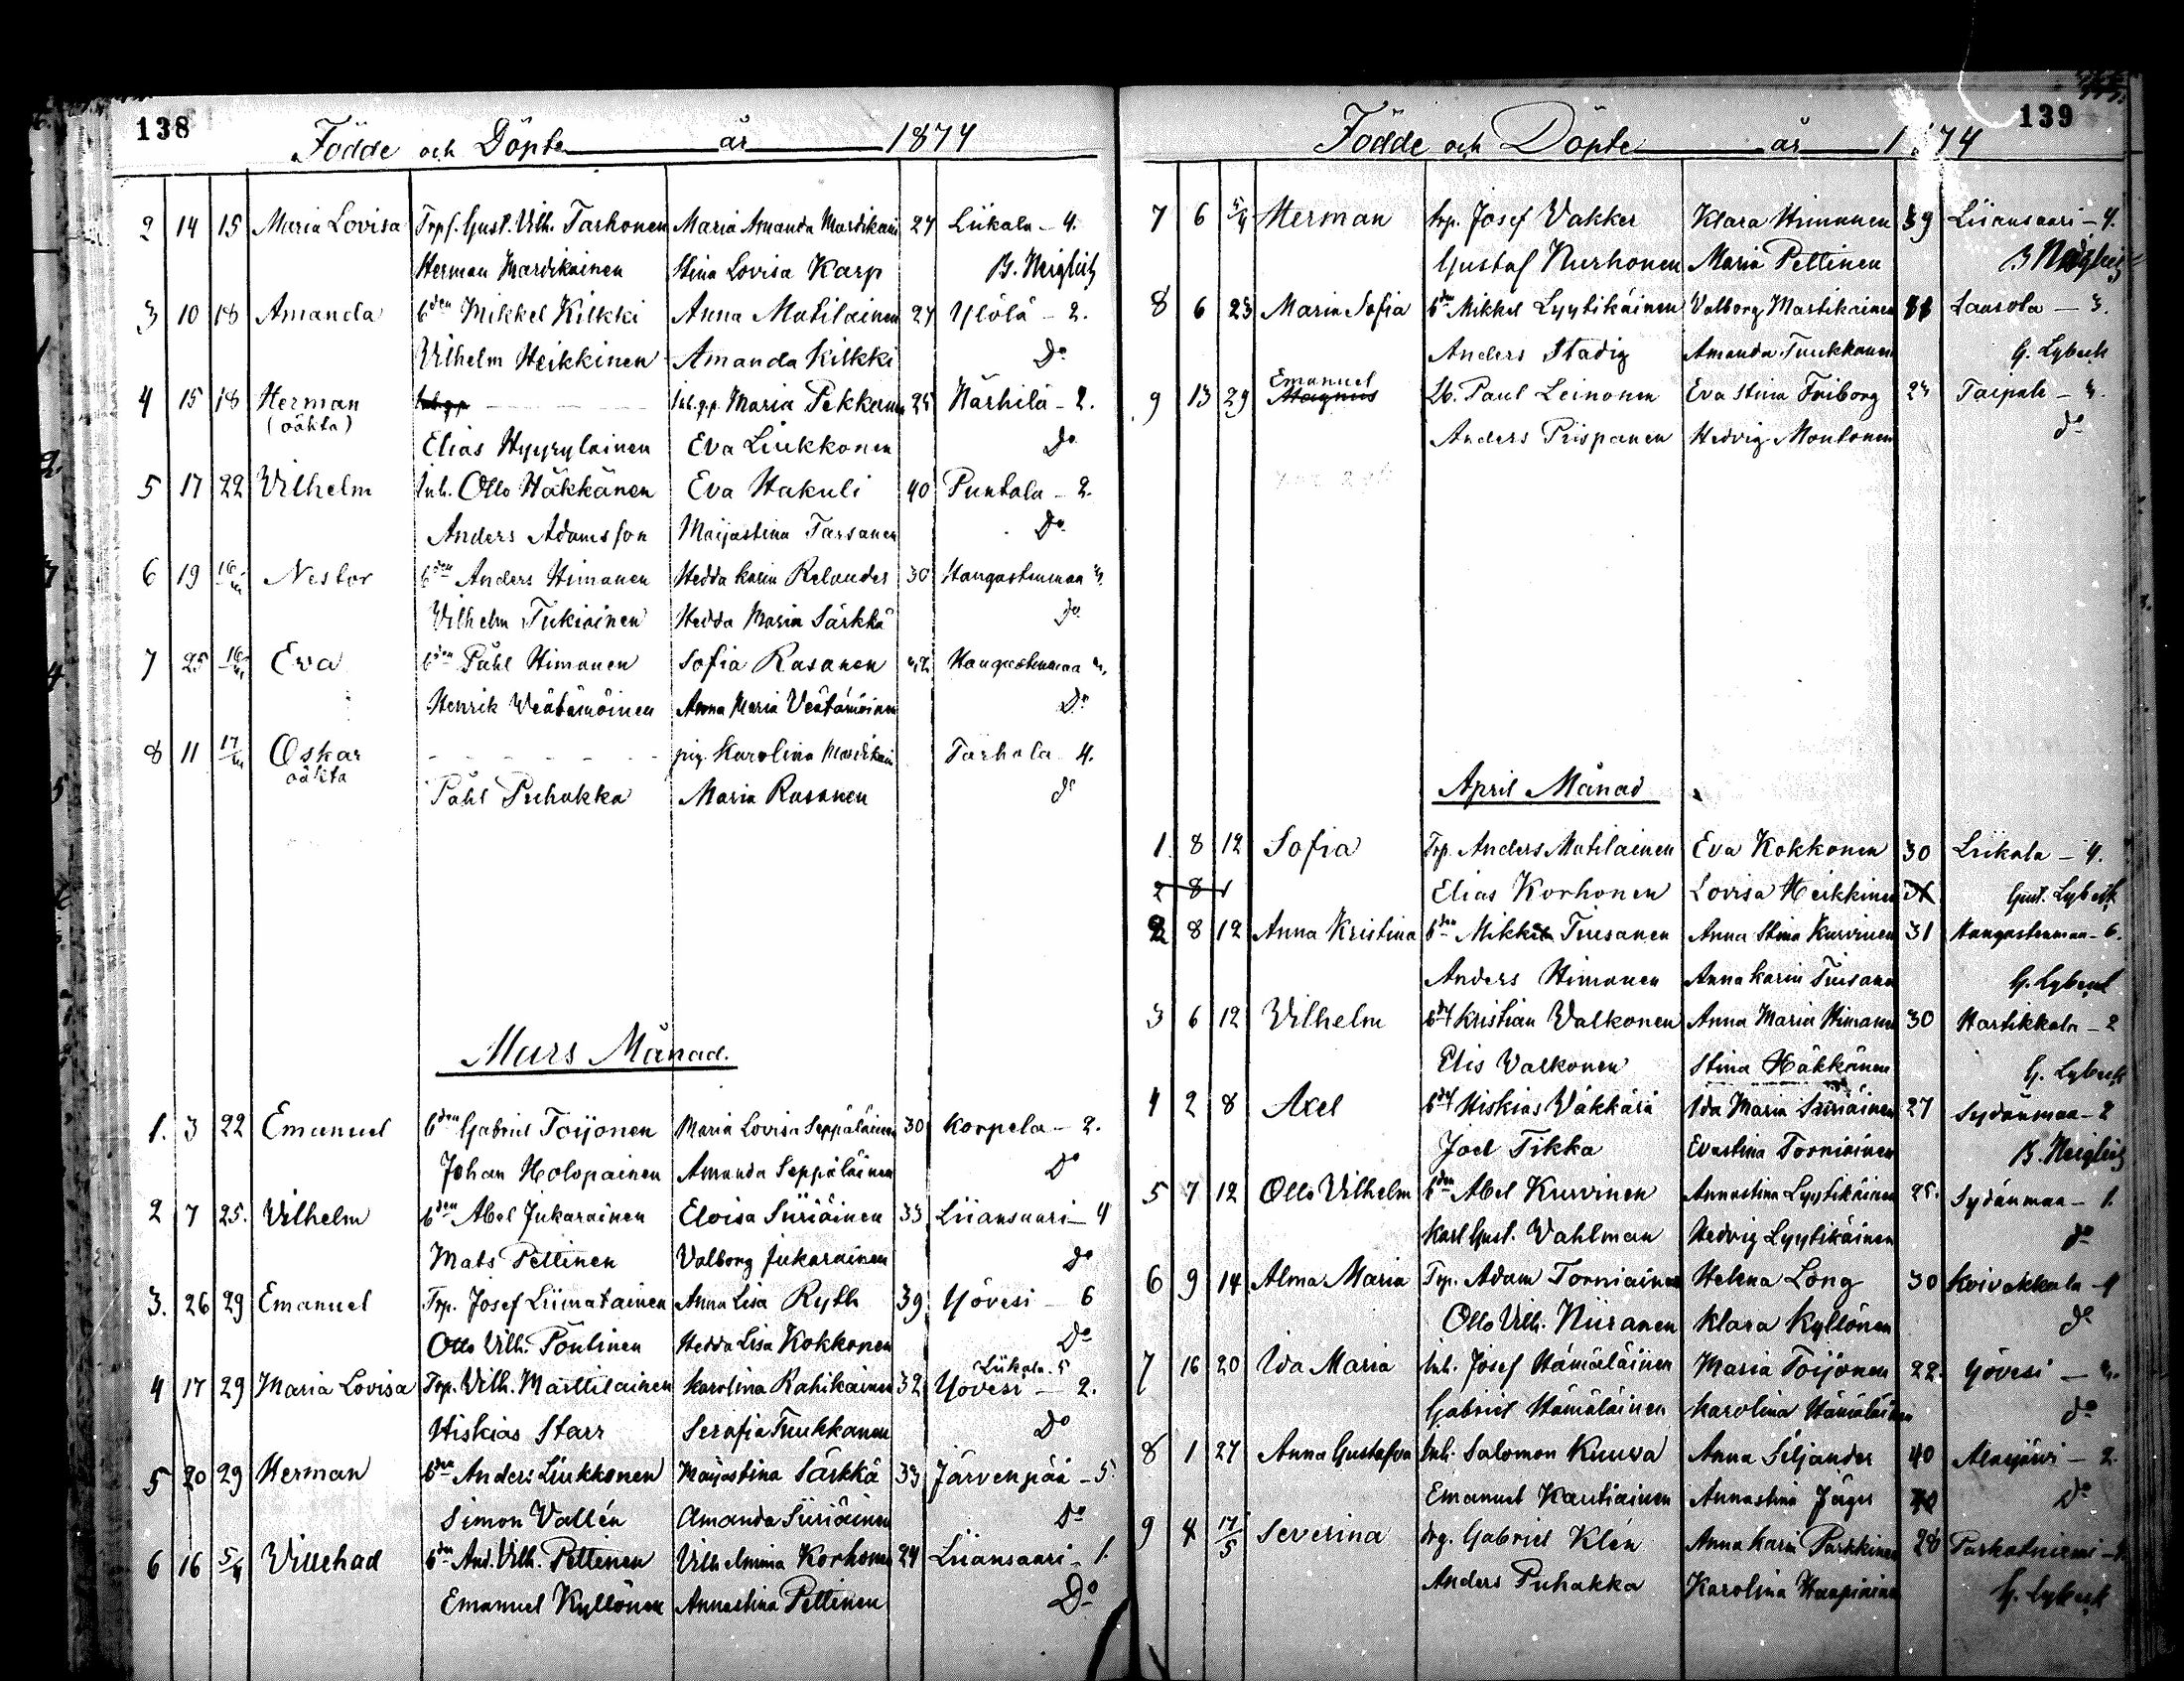 138
Födde och Döpte år 1874
2 14 15 Maria Lovisa Trpf. Gust. Vilh. Tarhonen Maria Amanda Mardikain 27 Liikala - 4.
Herman Mardikainen Stina Lovisa Karp B. Neiglick
3 10 18 Amanda bden Mikkel Kilkki Anna Matilainen 27 Ylölä - 2.
Vilhelm Heikkinen Amanda Kilkki Do
4 15 18 Herman Inh. g.p. Maria Pekkanen 25 Närhilä - 2.
(oäkta)
Elias Hyyrylainen Eva Liukkonen Do
5 17 22 Vilhelm Inh. Otto Häkkänen Eva Hakuli 40 Puntala - 2.
Anders Adamsson Maijastina Tarsanen Do
6 19 16/ Nestor bden Anders Himanen Hedda Karin Relander 30 Hangastenmaa
Vilhelm Tiukiainen Hedda Maria Särkkä do
7 25 16/ Eva bden Påhl Himanen Sofia Rasanen 42 Hangastenmaa
Henrik Weätämöinen Anna Maria Veätämöinen Do
8 11 17/ Oskar pig. Karolina Mardikain Tarhala 4.
oäkta
Påhl Puhakka Maria Rasanen do
Mars Månad.
1. 3 22 Emanuel bden Gabriel Toijonen Maria Lovisa Seppäläinen 30 Korpela - 2.
Johan Holopainen Amanda Seppäläinen Do
2 7 25. Vilhelm bden Abel Jukarainen Eloisa Siiriäinen 33 Liiansaari - 4
Mats Pettinen Valborg Jukarainen do
3. 26 29 Emanuel Trp. Josef Liimatainen Anna Lisa Ryth 39 Yövesi - 6
Otto Vilh. Pöntinen Hedda Lisa Kokkonen Do
Liikala 5
4 17 29 Maria Lovisa Trp. Vilh. Marttilainen Karolina Rahikainen 32 Yövesi - 2.
Hiskias Starr Serafia Tuukkanen Do
5 20 29 Herman bden Anders Liukkonen Maijastina Särkkä 33 Järvenpää - 5.
Simon Vallén Amanda Siiriäinen Do
6 16 5/4 Villehad bden And. Vilh. Pettinen Vilhelmina Korhonen 24 Liiansaari - 1.
Emanuel Kyllönen Annastina Pettinen Do
139
Födde och Döpte år 1874
7 6 5/4 Herman trp. Josef Vakker Klara Himanen 39 Liiansaari - 4.
Gustaf Nurhonen Maria Pettinen B Neiglick
8 6 23 Maria Sofia bden Mikkel Lyytikäinen Valborg Martikainen Laasola - 3.
Anders Stadig Amanda Tuukkanen G. Lybeck
Emanuel
9 13 29 Magnus Lb. Paul Leinonen Eva Stina Friborg 23 Taipale - 3.
Anders Prispanen Hedvig Montonen do
April Månad
1. 8 12 Sofia Trp. Anders Matilainen Eva Kokkonen 30 Liikala - 4.
2 8 Elias Korhonen Lovisa Heikkinen Gust. Lybeck
2 8 12 Anna Kristina bden Mikkel Tiusanen Anna Stina Kurvinen 31 Hangastenmaa - 6.
Anders Himanen Anna Karin Tiusanen G. Lybeck
3 6 12 Vilhelm Kristian Valkonen Anna Maria Himanen 30 Hartikkala - 2
Elis Valkonen Stina Häkkänen G. Lybeck
4 2 8 Axel Hiskias Väkkärä Ida Maria Siiriäinen 27 Sydänmaa - 2
Joel Tikka Evastina Torniainen B. Neiglick
5 7 12 Otto Vilhelm bden Abel Kurvinen Annastina Lyytikäinen 25. Sydänmaa - 1.
Karl Gust. Vahlman Hedvig Lyytikäinen do
6 9 14 Alma Maria Trp. Adam Torniainen Helena Long 30 Koivakkala - 1
Otto Vilh. Niiranen Klara Kyllönen do
7 16 20 Ida Maria Inh. Josef Hämäläinen Maria Toijonen 22. Yövesi
Gabriel Hämäläinen Karolina Hämäläinen do
8 1 27 Anna Gustafva Inh. Salomon Kuuva Anna Siljander 40 Alaijärvi - 2.
Emanuel Kautiainen Annastina Jäger Do
9 4 17/5 Severina drg. Gabriel Klén Anna Karin Parkkinen 28 Parkatniemi
Anders Puhakka Karolina Haapiainen G. Lybeck